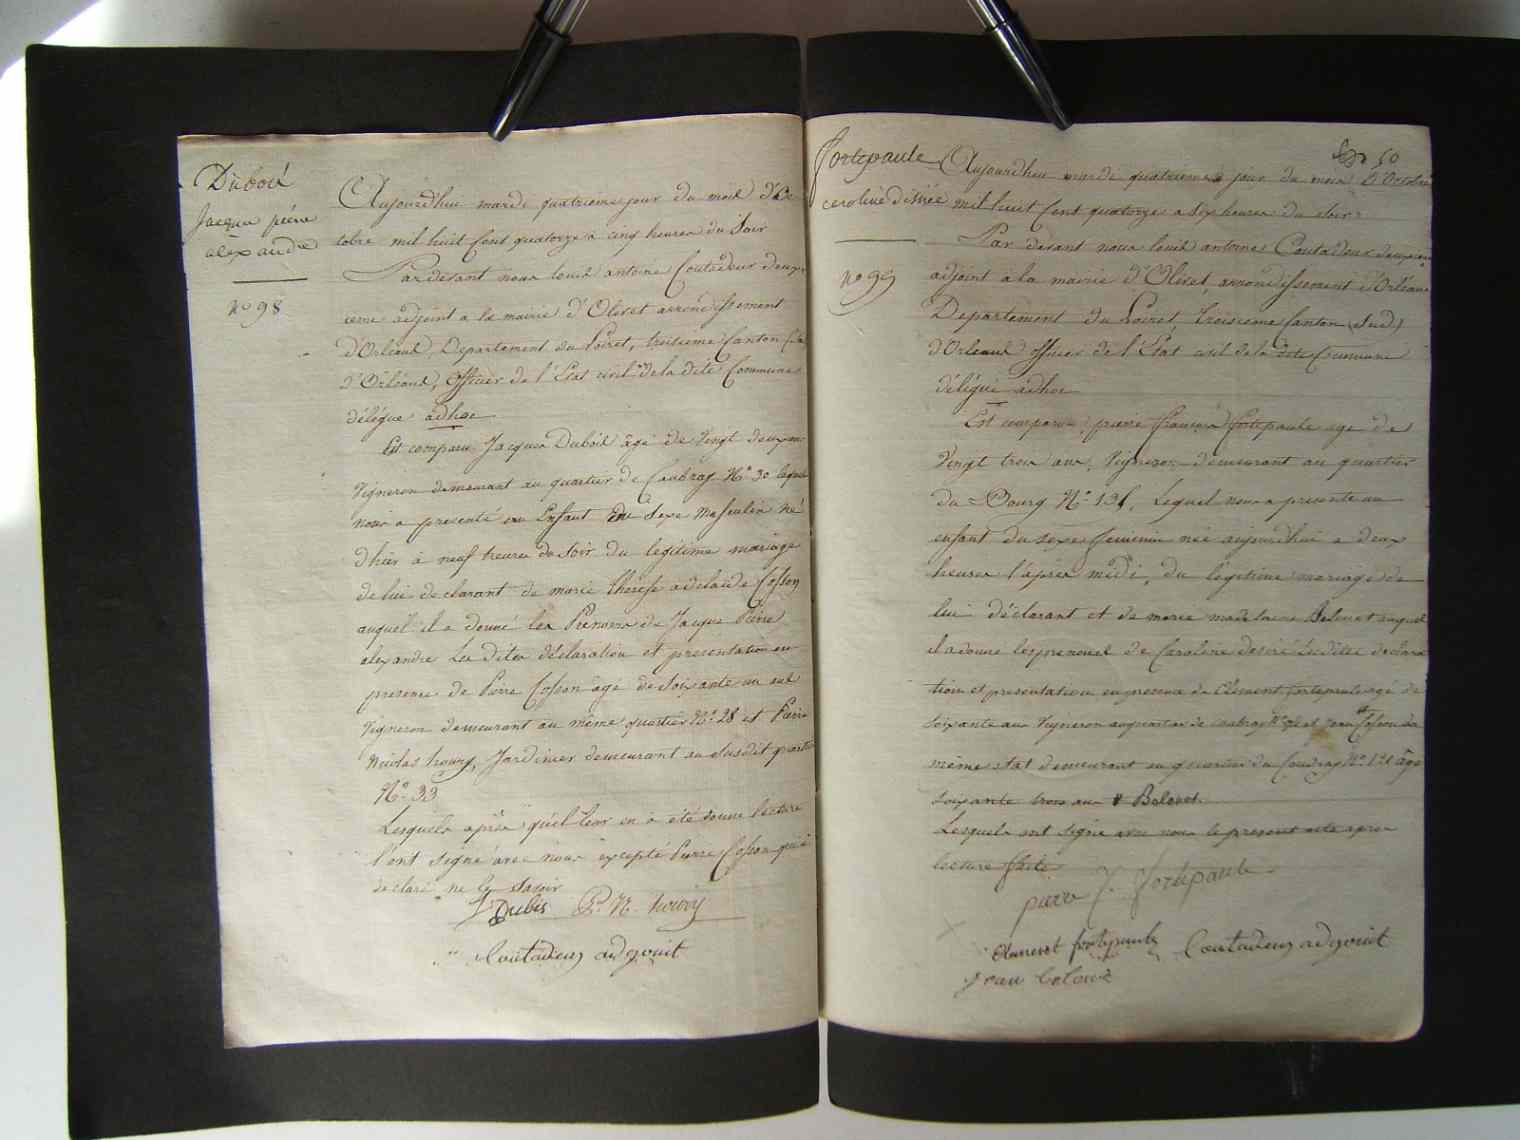 Duboi
Jacque piére
alexandre
No 98
Aujourd'hui mardi quatrieme jour du mois d'Oc
tobre mil huit cent quatorze a cinq heures du soir
Pardevant nous louis antoine Coutadeur deuxi
eme adjoint a la mairie d'Olivet arrondissement
d'Orleans, Departement du Loiret, troisieme Canton
d'Orléans, Officier de l'Etat civil de la dite Commune
délégue adhoc
Est comparu Jacques Dubois âgé de Vingt deux ans
Vigneron demeurant au quartier de Caubray No 30 lequel
nous a presenté un Enfant du Sexe Masculin né
d'hier à neuf heures du soir du legitime mariage
de lui declarant de marie thérèse adelaide Cosson
auquel il a donné les Prenoms de Jacque Pierre
alexandre Les dites déclaration et présentation en
presence de Pierre Cosson âgé de soixante un ans
Vigneron demeurant au même quartier No 28 et Pierre
Nicolas hourry, Jardinier demeurant au susdit quartier
No 33
Lesquels après qu'il leur en a été donné lecture
l'ont signé avec nous excepté Pierre Cosson qui a
declaré ne le savoir
J Dubis P. N. hurory
Coutadeur adjouit
50
fortepaule
caroline désirée
No 99
Aujourdhui mardi quatrieme jour du mois d'Octobre
mil huit Cent quatorze a six heures du soir
Par devant nous louis antoine Coutadeur deuxieme
adjoint à la mairie d'Olivet, arrondissement d'Orléans
Departement du Loiret, troisieme Canton (Sud)
d'Orleans officier de l'Etat civil de la dite Commune
délégué adhoc
Est comparu pierre françois fortepaule age de
Vingt trois ans, Vigneron demeurant au quartier
du Bourg No Lequel nous a presenté un
enfant du sexe feminin née aujourdhui a deux
heures l'après midi, du légitime mariage de
lui déclarant et de marie madelaine Belouet auquel
il a donné les prenoms de Caroline desiré Les dites declara
tion et presentation en presence de Clément fortepaule agé de
soixante ans Vigneron au quartier de caubray No et jean Cosson du
même etat demeurant au quartier du Coudray No 121 âgé
soixante trois ans # Belouet.
Lesquels ont signé avec nous le present acte apres
lecture faite
pierre f. fortepaule
Clement fortepaule Coutadeur adjouit
jean belouet